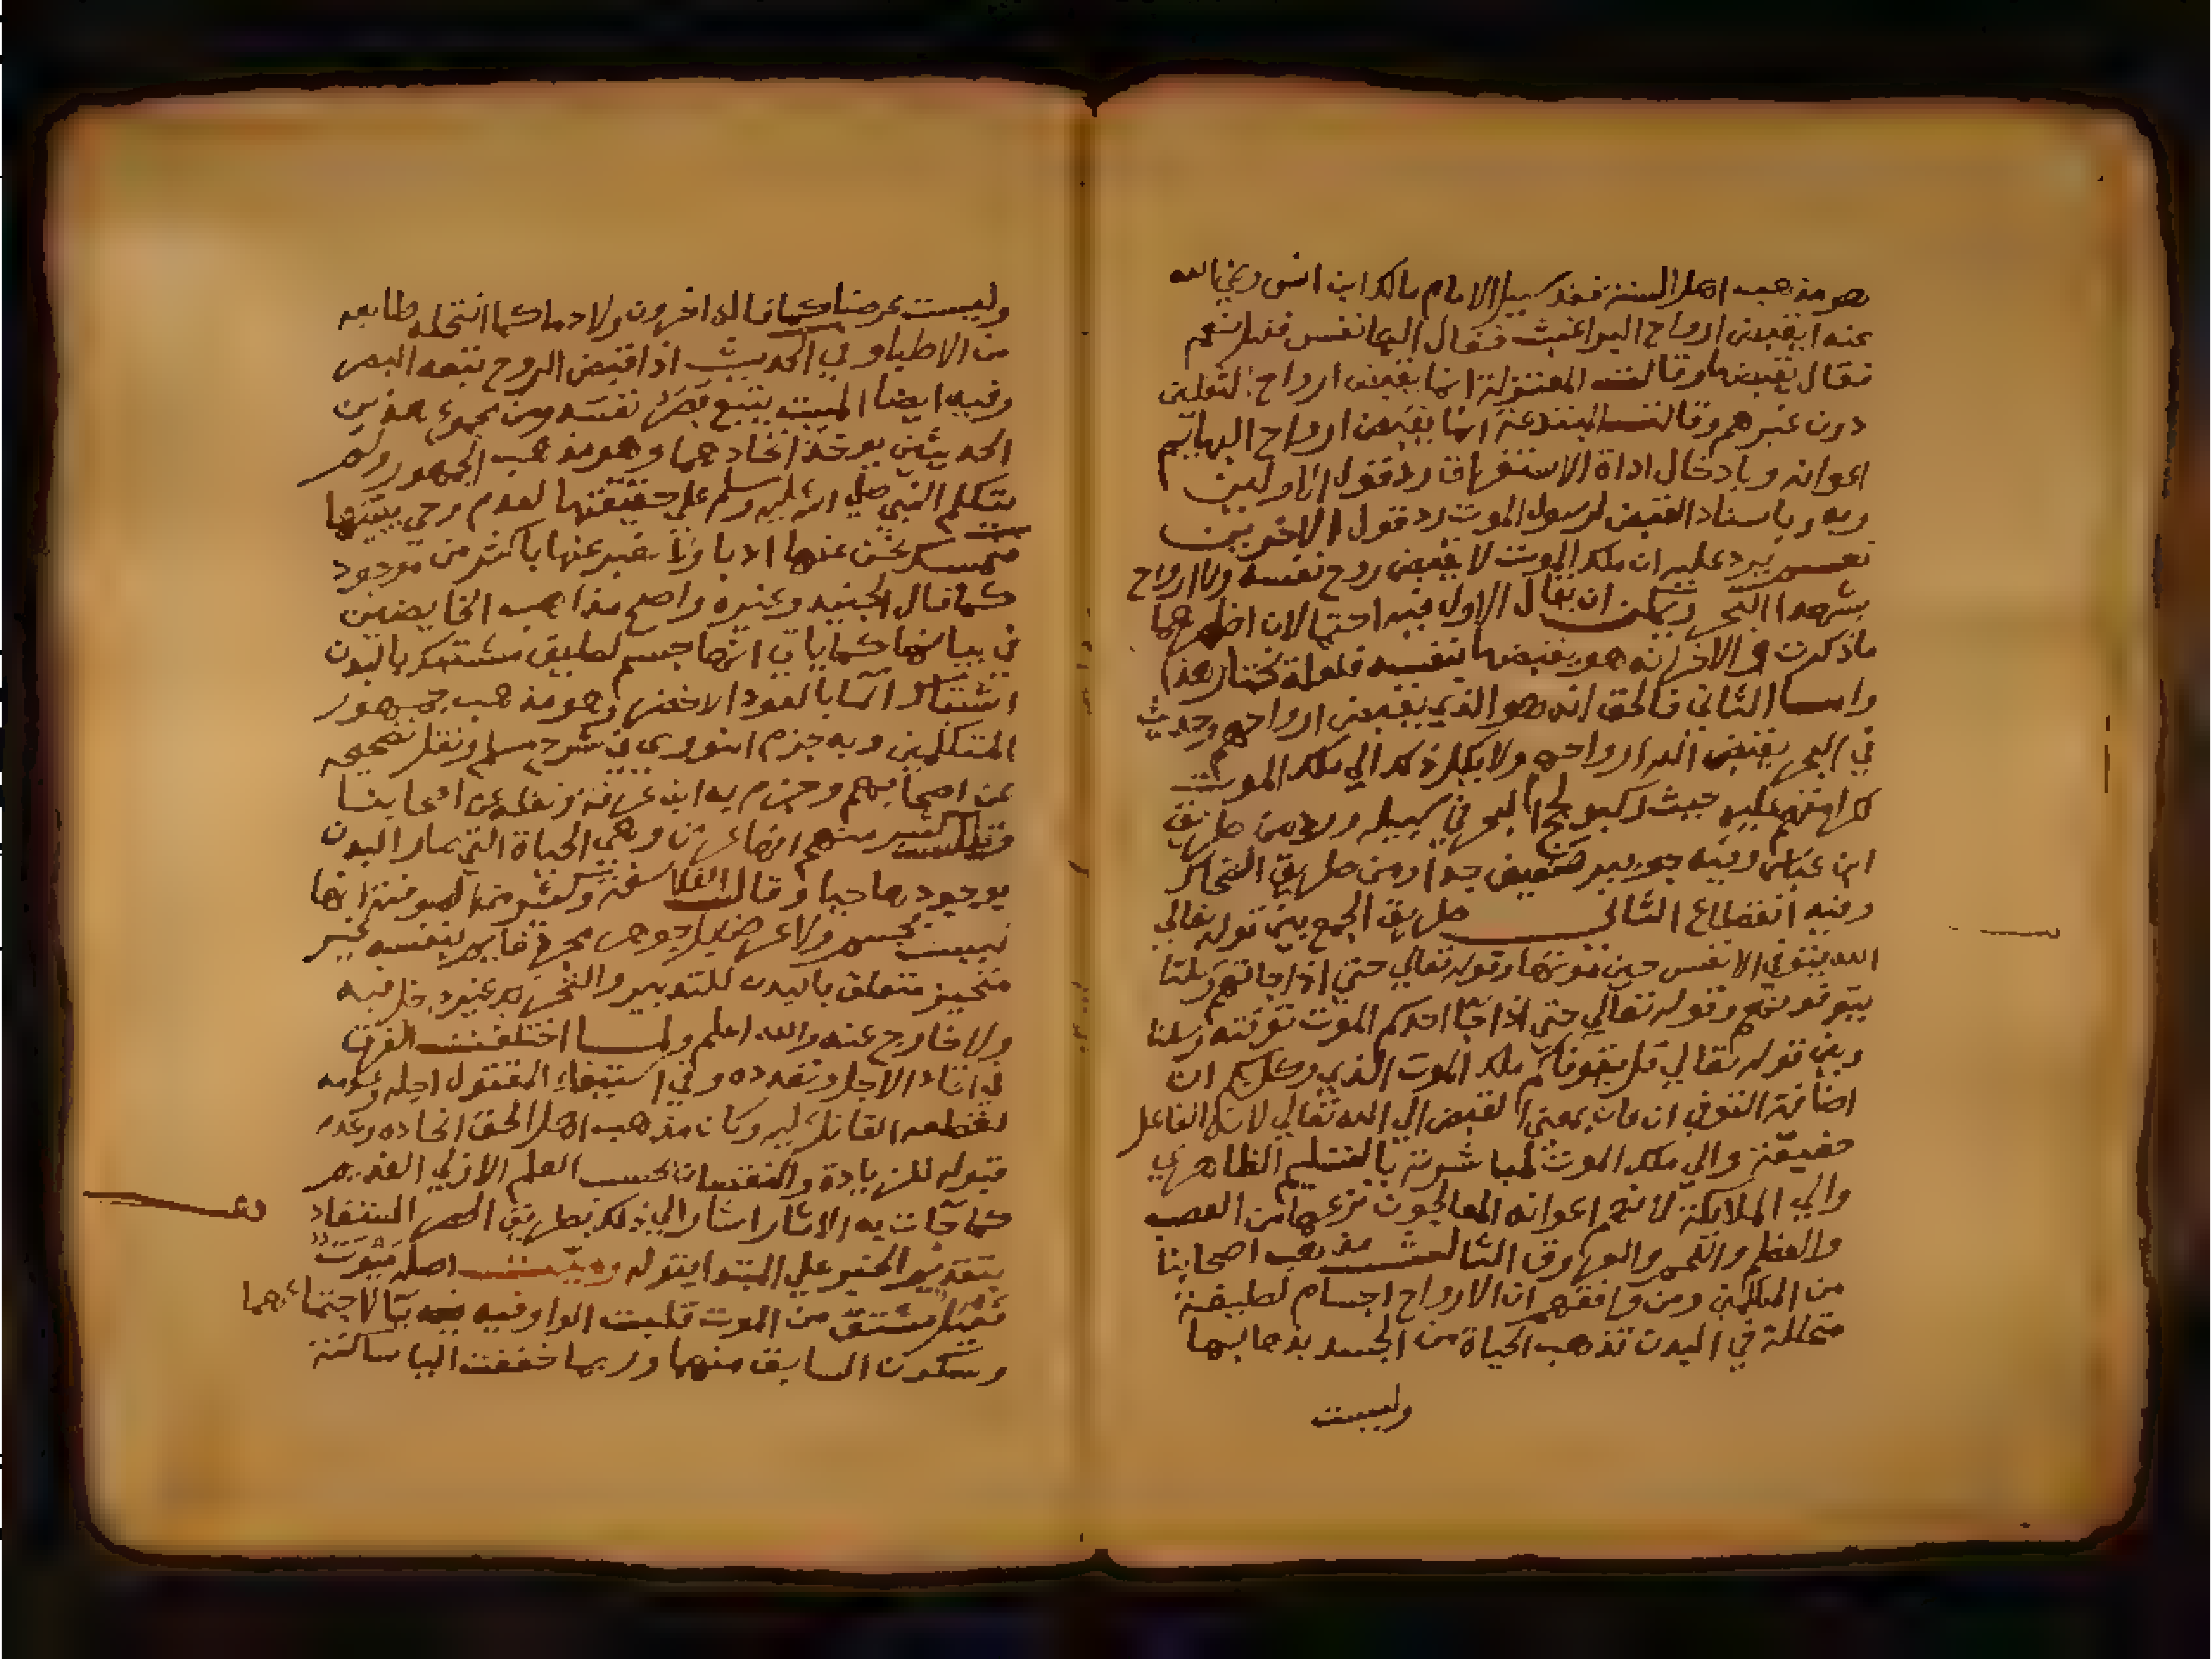 هو مذهب اهل السنة فقد سيل الامام مالك ابن انس رضي الله
عنه ايقبض ارواح البراغيث فقال الها نفس فقيل نعم
فقال يقبضها وقالت المعتزلة انما يقبض ارواح الثقلين
دون غيرهم وقالت المبتدعة انما يقبض ارواح البهايم
اعوانه وبادخال اداة الاستغراق رد قول الاولين
وبه وباسناد القبض لرسول الموت رد قول الاخرين
نعم يرد عليه ان ملك الموت لا يقبض روح نفسه ولا ارواح
شهدا البحر ويمكن ان يقال الاول فيه احتمالان اظهرهما
ما ذكرت والاخر انه هو يقبضها بنفسه فلعله تختار هذا
واما الثاني فالحق انه هو الذي يقبض ارواحهم وحديث
في البحر يقبض الله ارواحهم ولا يكل ذلك الي ملك الموت
لكرامتهم عليه حيث ركبو لجج البحر في سبيله روي من طريق
ابن عباس وفيه جويبر ضعيف جدا ومن طريق الضحاك
وفيه انقطاع الثاني طريق الجمع بين قوله تعالي
الله يتوفي الانفس حين موتها وقوله تعالي حتي اذا جاتهم رسلنا
يتوفونهم وقوله تعالي حتي اذا جا احدكم الموت توفته رسلنا
وبين قوله تعالي قل يتوفاكم ملك الموت الذي وكل بكم ان
اضافة التوفي ان كان بمعني القبض الي الله تعالي لانه الفاعل
حقيقة والي ملك الموت لمباشرته بالتسليم الظاهري
والي الملايكة لانهم اعوانه المعالجون نزعها من العصب
والعظم واللحم والعروق الثالث مذهب اصحابنا
من المتكلمين ومن وافقهم ان الارواح اجسام لطيفة
متخللة في البدن تذهب الحياة من الجسد بذهابها
وليست
وليست عرضا كما قال اخرون ولا دما كما انتحله طايفه
من الاطبا وفي الحديث اذا قبض الروح تبعه البصر
وفيه ايضا الميت يتبع بصره نفسه ومن مجموع هذين
الحديثين يوخذ اتحادهما وهو مذهب الجمهور ولم
يتكلم النبي صلي الله عليه وسلم علي حقيقتها لعدم وحي بينها
فنمسك نحن عنها ادبا ولا نعبر عنها باكثر من موجود
كما قال الجنيد وغيره واصح مذاهب الخايضين
في بيانها كما ياتي انها جسم لطيف مشتبك بالبدن
اشتباك الما بالعود الاخضر وهو مذهب جمهور
المتكلمين وبه جزم النووي في شرح مسلم ونقل تصحيحه
عن اصحابهم وجزم به ابن عرفة ونقله عن اصحابنا
وقال كثير منهم انها عرض وهي الحياة التي صار البدن
بوجودها حيا وقال الفلاسفة وكثير من الصوفية انها
ليست بجسم ولا عرض بل جوهر مجرد قايم بنفسه غير
متحيز متعلق بالبدن للتدبير والتحريك غير داخل فيه
ولا خارج عنه والله اعلم ولما اختلفت الفرق
في اتحاد الاجل وتعدده وفي استيفاء المقتول اجله وعدمه
لقطعه القاتل عليه وكان مذهب اهل الحق اتحاده وعدم
قبوله للزيادة والنقصان بحسب العلم الازلي القديم
كما جات به الاثار اشار الي ذلك بطريق الحصر المستفاد
بتقديم الخبر علي المبتدا بقوله وميت اصله ميوت
فيعل مشتق من الموت قلبت الواو فيه يا لاجتماعهما
وسكون السابق منهما وربما خففت اليا ساكنة